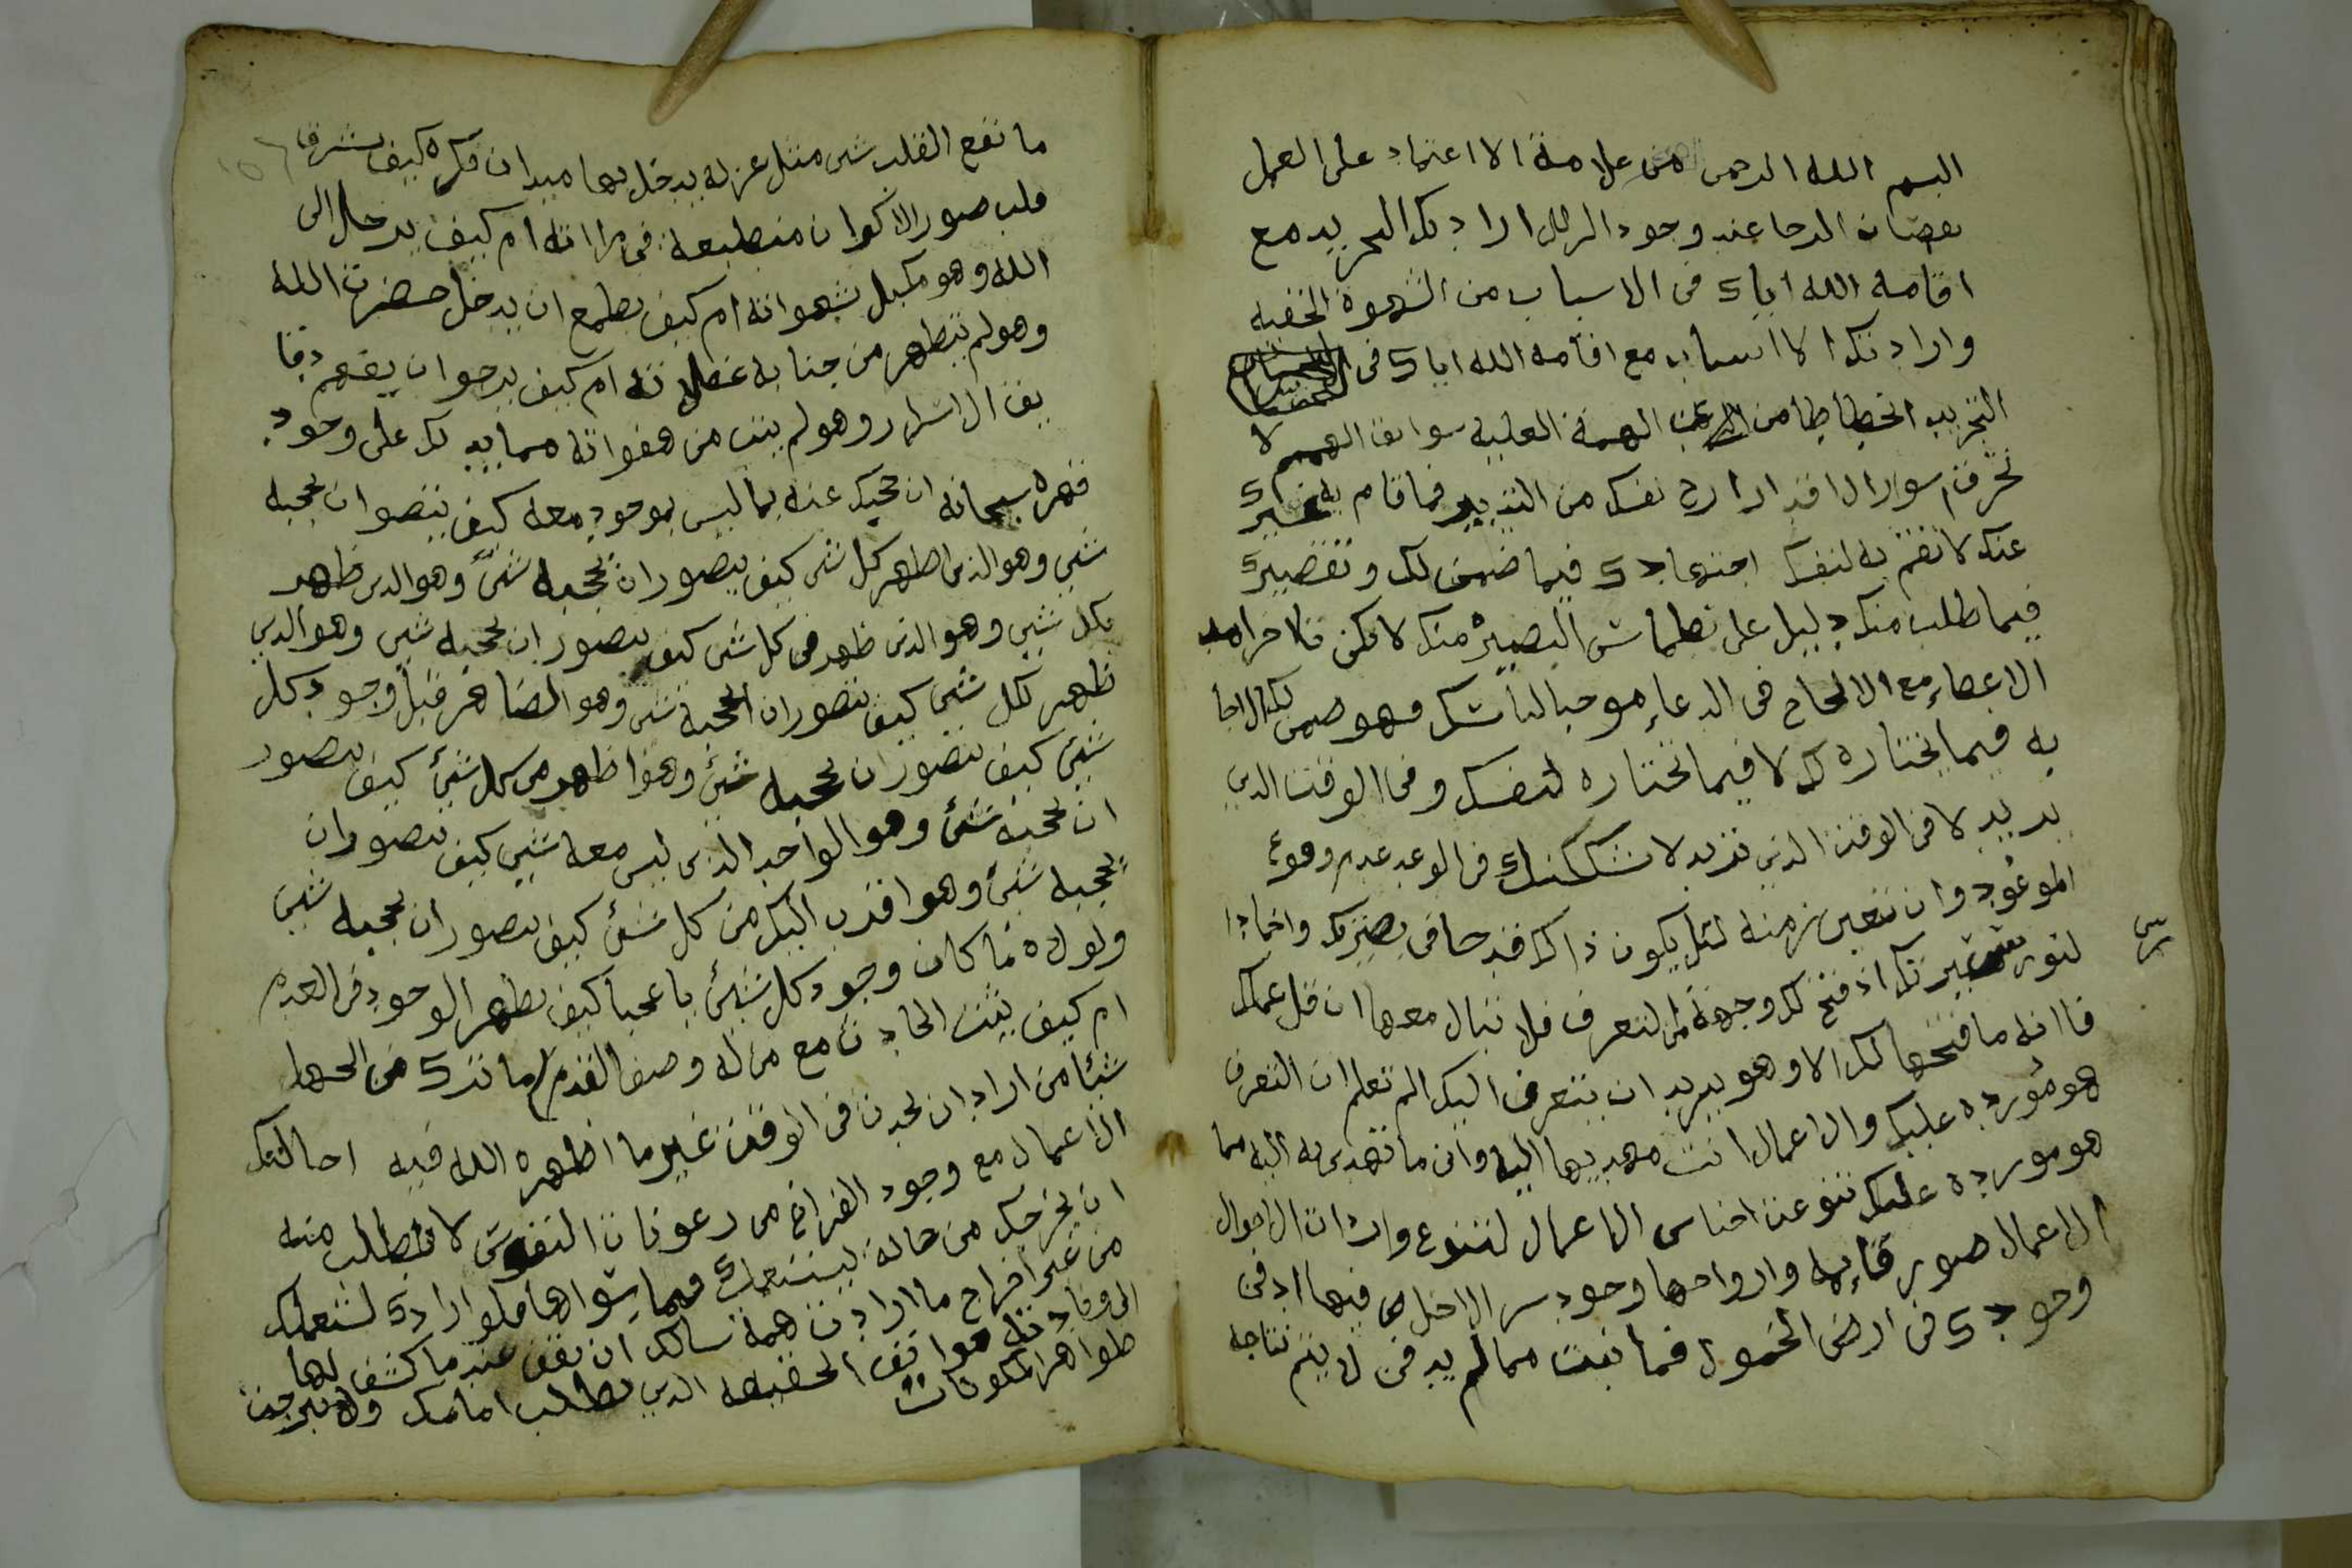 البسم الله الرحمن من علامة الا اعتماد على العمل
نقصان الرجا عند وجود الزلل ارادتك التجريد مع
اقامة الله اياك فى الاسباب من الشهوة الخفيه
وارادتك الا اسباب مع اقامة الله اياك فى
التجريد انحطاطا من الهمة العلية سوابق الهمم لا
تخرق اسوار الاقدار ارح نفسك من التدبير فما قام به غيرك
عنك لا تقم به لنفسك اجتهادك فيما ضمن لك وتقصيرك
فيما طلب منك دليل على نطماش البصيرة منك لا يكن تااخر امد
الاعطاء مع الالحاح فى الدعاء موجبا لياسك فهو ضمن لك الاجا
به فيما يختاره لك لا فيما تختاره لنفسك وفى الوقت الذي
يريد لا فى الوقت الذي تريد لا تشككنك فى الوعد عدم وقوع
الموعود وان تعين زمنه لئل يكون ذالك قدحا فى بصيرتك واخمادا
لنور سريرتك اذ فتح لك وجهة من لتعرف فلا تبال معها ان قل عملك
فاانه ما فتحها لك الا وهو يريد ان يتعرف اليك الم تعلم ان التعرف
هو مورده عليك والاعمال انت مهديها اليه واين ما تهديه اليه مما
هو مورده عليك تنوعت اجناس الاعمال لتنوع واردات الاحوال
الاعمال صور قايمه وارواحها وجود سر الاخلاص فيها ادفن
وجودك فى ارض الخمول فما نبت مما لم يدفن لا يتم نتاجه
ما نفع القلب شى مثل عزله يدخل بها ميدان فكره كيف يشرق
قلب صور الاكوان منطبعة فى مرااته ام كيف يدخل الى
الله وهو مكبل بشهواته ام كيف يطمع ان يدخل حضرت الله
وهو لم يتطهر من جنابه غفلاته ام كيف يرجوا ان يفهم دقا
يق الاسرار وهو لم يتب من هفواته مما يدلك على وجود
قهره سبحانه ان حجبك عنه بما ليس بموجود معه كيف يتصوا ان يحجبه
شي وهو الذى اظهر كل شى كيف يتصور ان يحجبه شئ وهو الذى ظهر
بكل شي وهو الذى ظهر فى كل شى كيف يتصور ان يحجبه شي وهو الذي
ظهر لكل شى كيف يتصور ان يحجبه شى وهو الضاهر قبل وجود كل
شئ كيف يتصور ان يحجبه شئ وهو اظهر من كل شئ كيف يتصور
ان يحجبه شئ وهو الواحد الذى ليس معه شي كيف يتصور ان
يحجبه شئ وهو اقرب اليك من كل شئ كيف يتصور ان يحجبه شئ
ولولاه ما كان وجود كل شئ يا عجبا كيف يظهر الوجود فى العدم
ام كيف يثبت الحادث مع من له وصف القدم ما ترك من الجهل
شيئا من اراد ان يحدث فى الوقت غير ما اظهره الله فيه احالتك
الاعمال مع وجود الفراغ من رعونات النفوس لا تطلب منه
ان يخرجك من حالة ليستعملك فيما سواها فلو ارادك لستعملك
من غير اخراج ما ارادت همة سالك ان تقف عند ما كشف لها
الا ونادته هواتف الحقيقه الذي تطلب امامك ولا تبرجت
ظواهر المكونات